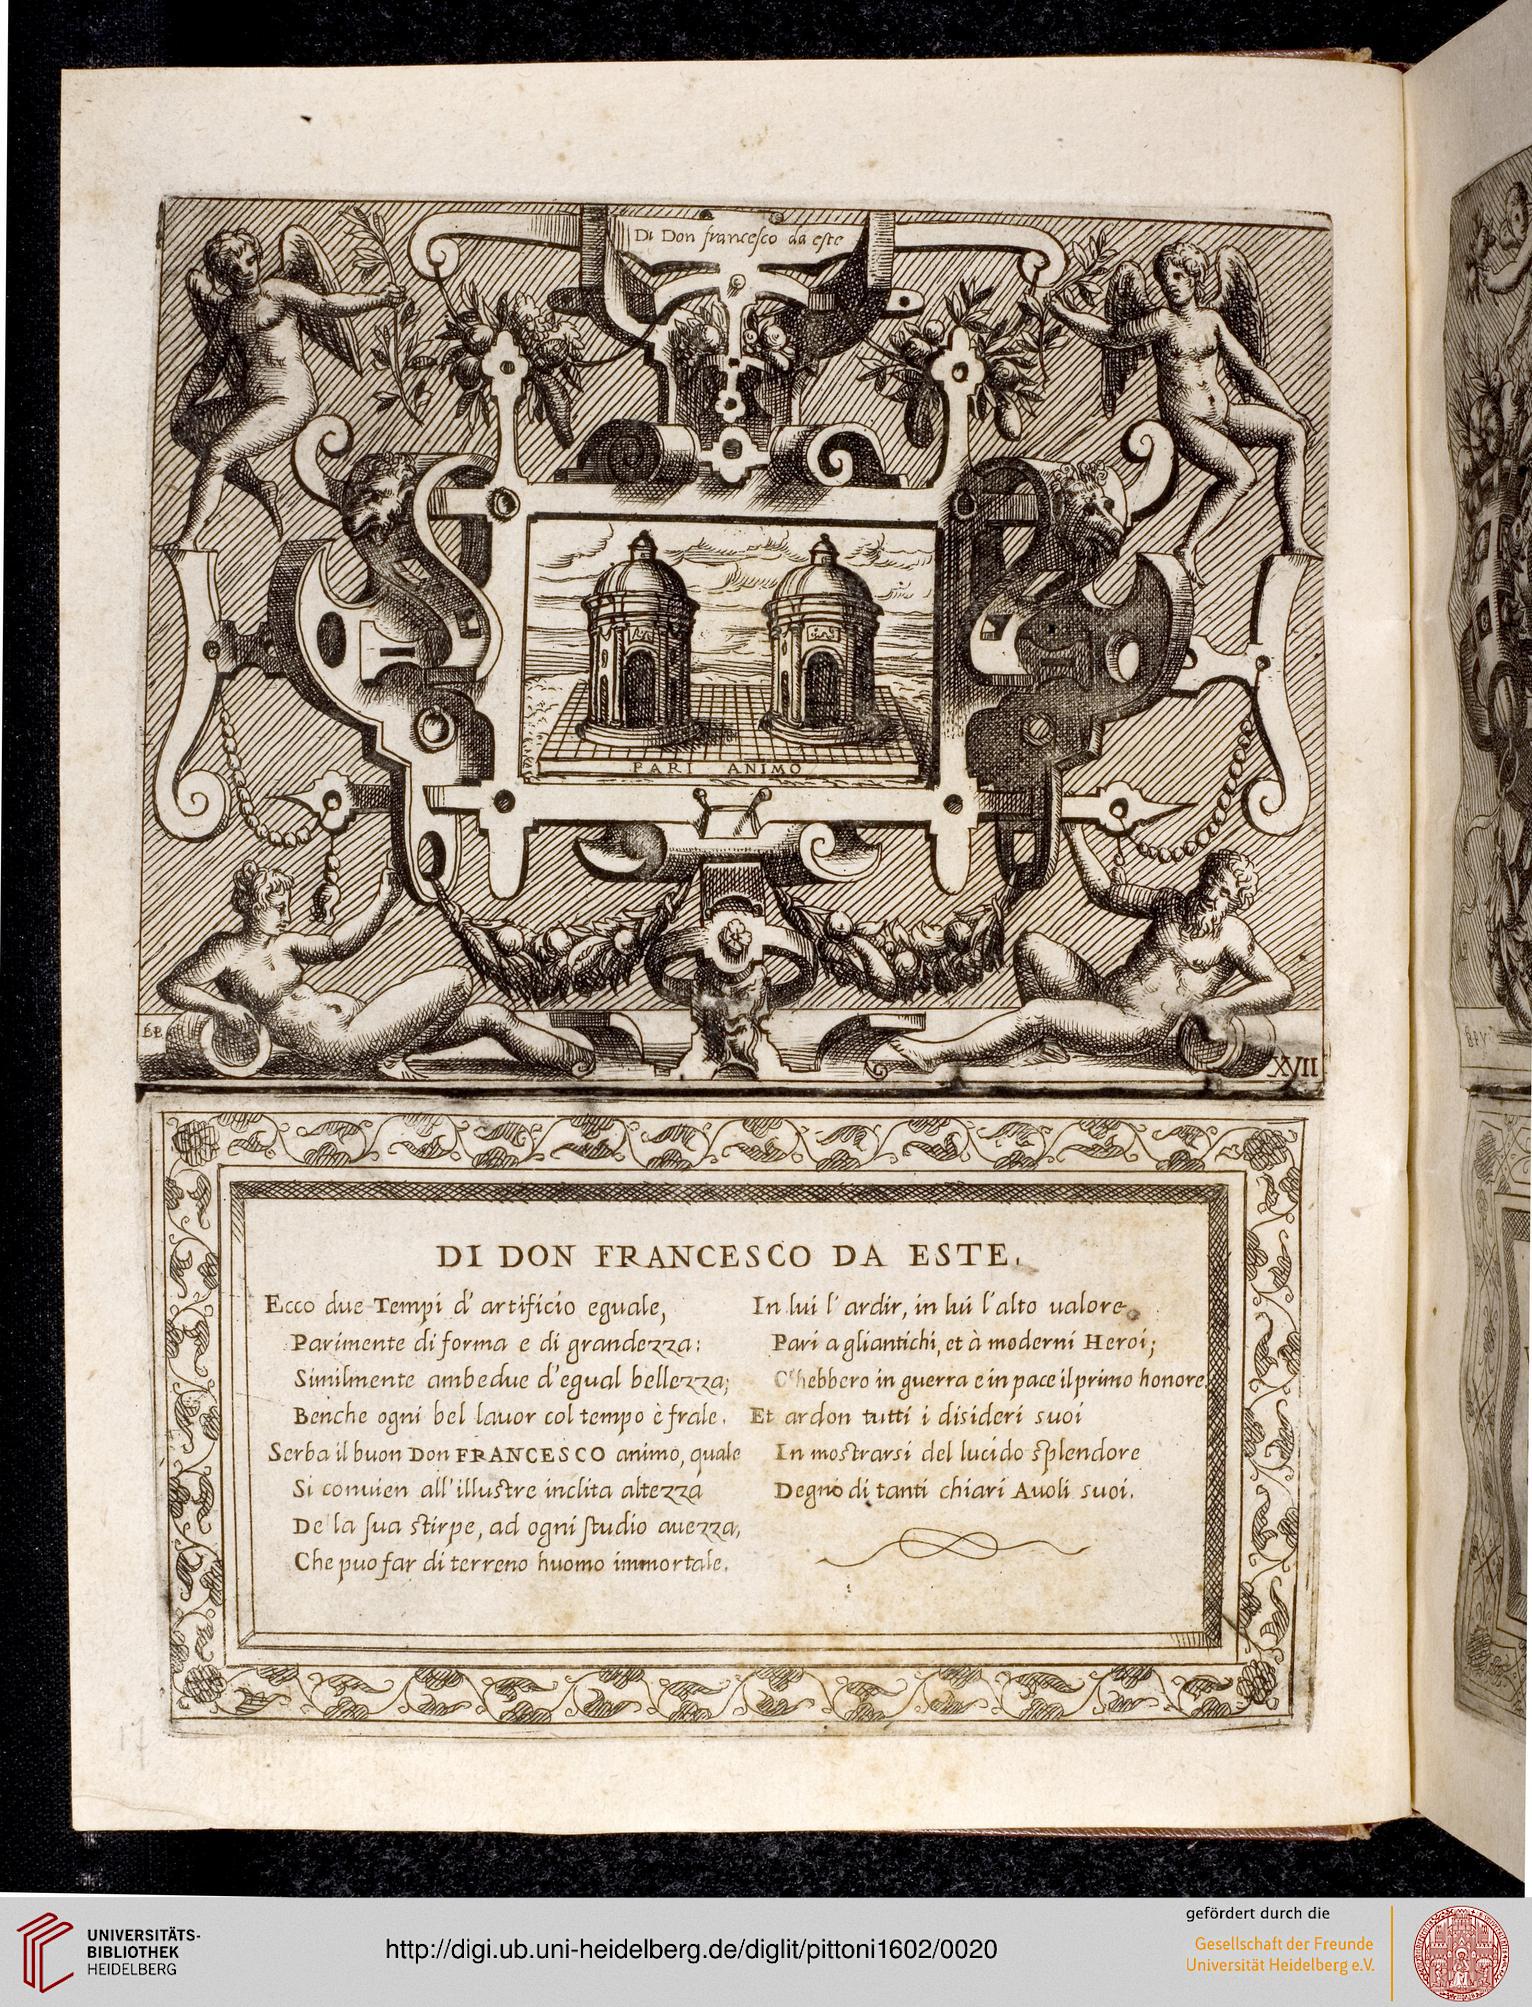 Di Don francesco da este
PARI ANIMO
E.B.
XVII
DI DON FRANCESCO DA ESTE.
Ecco due Tempi d' artificio eguale,
Parimente di forma e di grandezza:
Similmente ambedue d'egual bellezza;
Benche ogni bel lauor col tempo è frale.
Serba il buon Don FRANCESCO animo, quale
Si conuien all'illustre inclita altezza
De la sua stirpe, ad ogni studio auezza,
Che puo far di terreno huomo immortale.
In lui l' ardir, in lui l'alto ualore
Pari a gliantichi, et à moderni Heroi;
C'hebbero in guerra e in pace il primo honore
Et ardon tutti i disideri suoi
In mostrarsi del lucido splendore
Degno di tanti chiari Auoli suoi.
17
UNIVERSITÄTS-
BIBLIOTHEK
HEIDELBERG
http://digi.ub.uni-heidelberg.de/diglit/pittoni1602/0020
gefördert durch die
Gesellschaft der Freunde
Universität Heidelberg e.V.